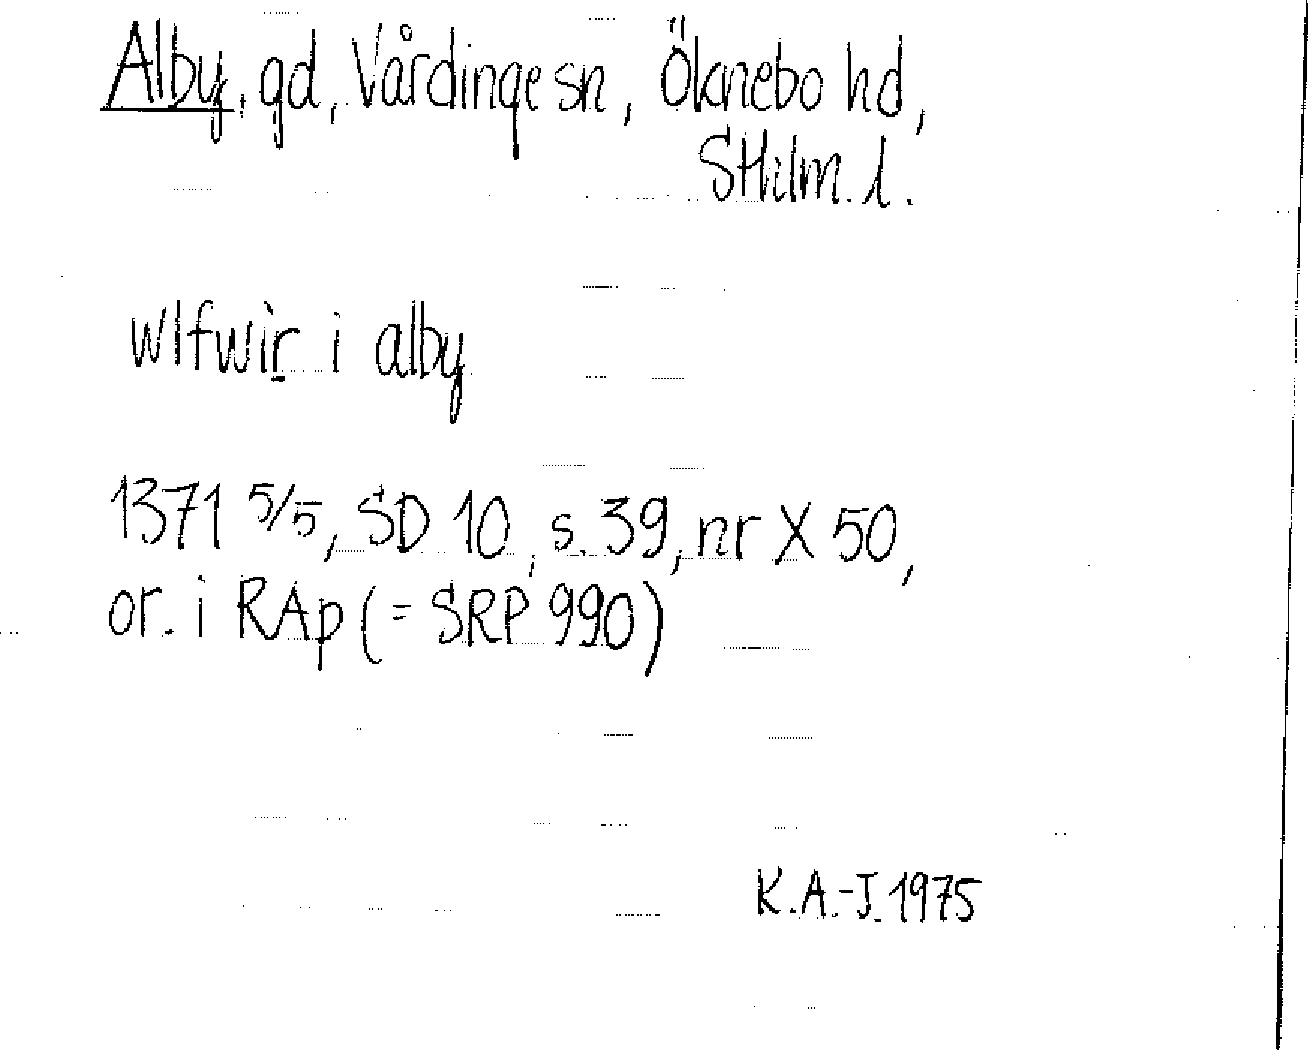 Alby, gd, Vårdinge sn, Öknebo hd,
Sthlm. l.
wlfwir i alby
1371 5/5, SD 10, s. 39, nr X 50,
or. i RAp (= SRP 990)
K.A.-J. 1975